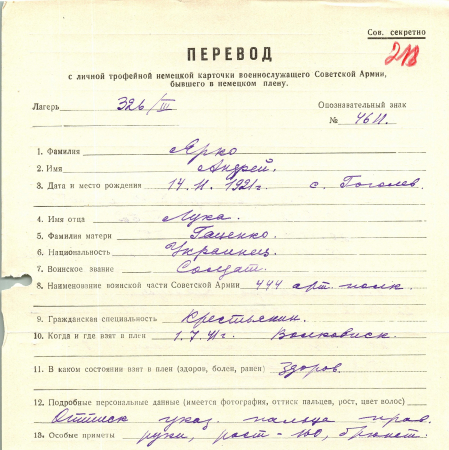 Сов. секретно
218
ПЕРЕВОД
с личной трофейной немецкой карточки военнослужащего Советской Армии,
бывшего в немецком плену.
Лагерь 326/III Опознавательный знак
№ 4611.
1. Фамилия Ярко
2. Имя Андрей.
3. Дата и место рождения 14.11.1921г. с. Гоголев.
4. Имя отца Лука.
5. Фамилия матери Гаценко.
6. Национальность Украинец.
7. Воинское звание Солдат.
8. Наименование воинской части Советской Армии 444 арт. полк.
9. Гражданская специальность Крестьянин.
10. Когда и где взят в плен 1.7.41г. Волковиск.
11. В каком состоянии взят в плен (здоров, болен, ранен) здоров.
12. Подробные персональные данные (имеется фотография, оттиск пальцев, рост, цвет волос)
Оттиск указ. пальца прав.
13. Особые приметы руки, рост - брюнет.